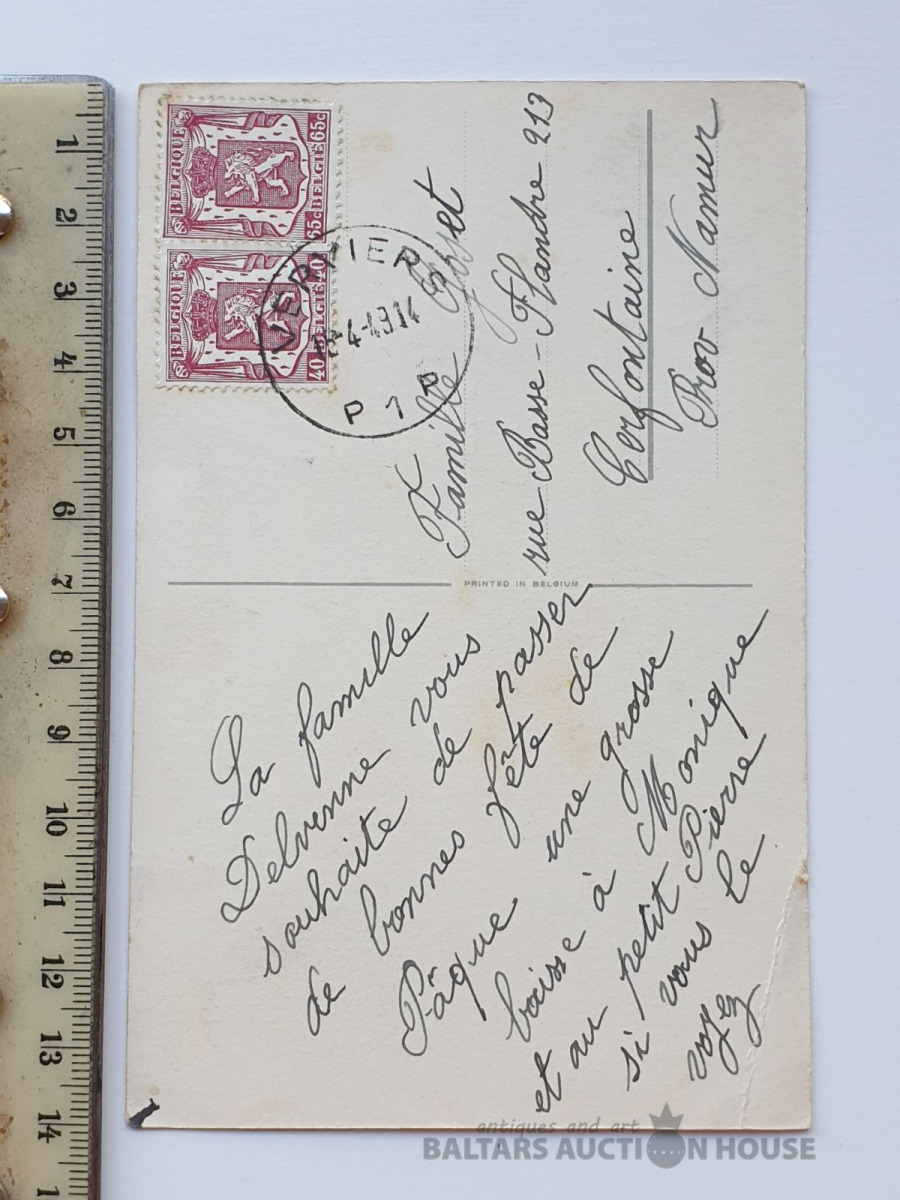 La famille
Delvenne vous
souhaite de passer
de bonnes fête de
Pâque une grosse
baisse à Monique
et au petit Pierre
si vous le
voyez
PRINTED IN BELGIUM
BELGIQUE
65c BELGIE 65c
BELGIQUE
40 BELGIE 40
VERVIERS
P 1 P
Famille
rue Basse-Flandre 213
Cerfontaine
Prov Namur
1
2
3
4
5
6
7
8
9
10
11
12
13
14
antiques and art
BALTARS AUCTION HOUSE